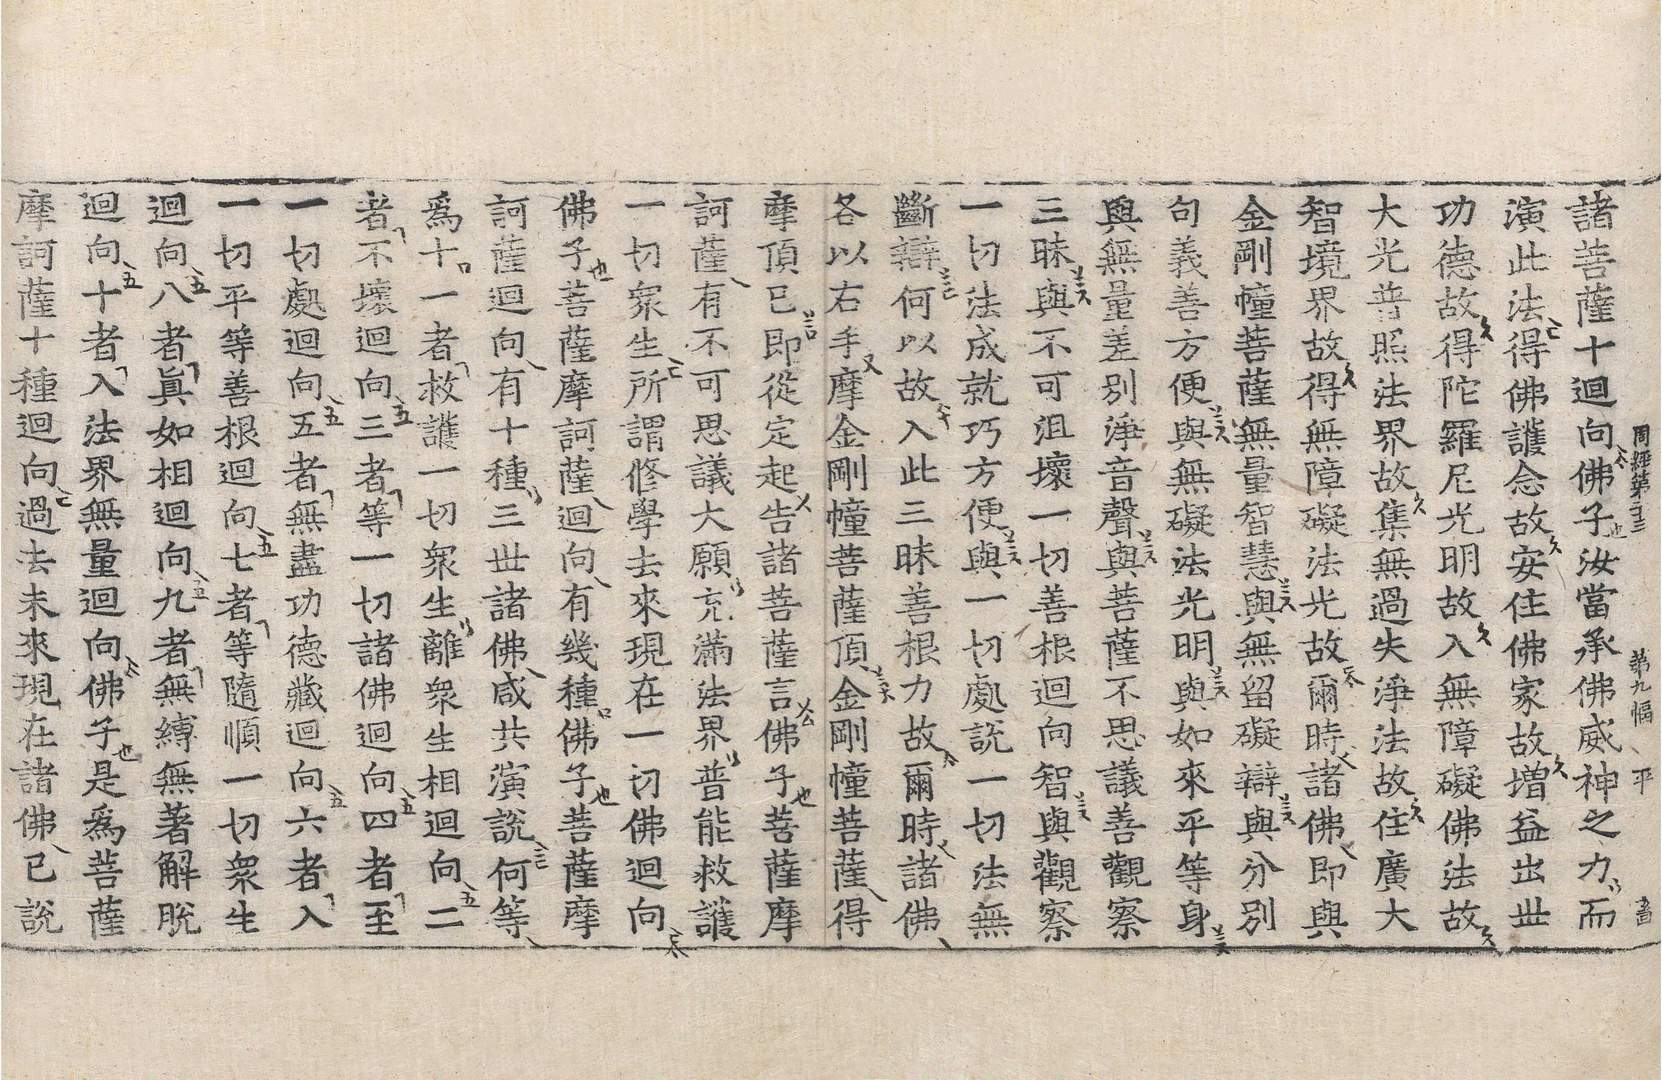 諸菩薩十迴向佛子汝當承佛威神之力而
演此法得佛護念故安住佛家故增益出世
功德故得陀羅尼光明故入無障礙佛法故
大光普照法界故集無過失淨法故住廣大
智境界故得無障礙法光故爾時諸佛即與
金剛幢菩薩無量智慧與無留礙辯與分別
句義善方便與無礙法光明與如來平等身
與無量差別淨音聲與菩薩不思議善觀察
三昧與不可沮壞一切善根迴向智與觀察
一切法成就巧方便與一切處說一切法無
斷辯何以故入此三昧善根力故爾時諸佛
各以右手摩金剛幢菩薩頂金剛幢菩薩得
摩頂已即從定起告諸菩薩言佛子菩薩摩
訶薩有不可思議大願充滿法界普能救護
一切眾生所謂修學去來現在一切佛迴向
佛子菩薩摩訶薩迴向有幾種佛子菩薩摩
訶薩迴向有十種三世諸佛咸共演說何等
爲十一者救護一切眾生離眾生相迴向二
者不壞迴向三者等一切諸佛迴向四者至
一切處迴向五者無盡功德藏迴向六者入
一切平等善根迴向七者等隨順一切眾生
迴向八者眞如相迴向九者無縛無著解脫
迴向十者入法界無量迴向佛子是爲菩薩
摩訶薩十種迴向過去未來現在諸佛已說
周經第二十三 第九幅 平